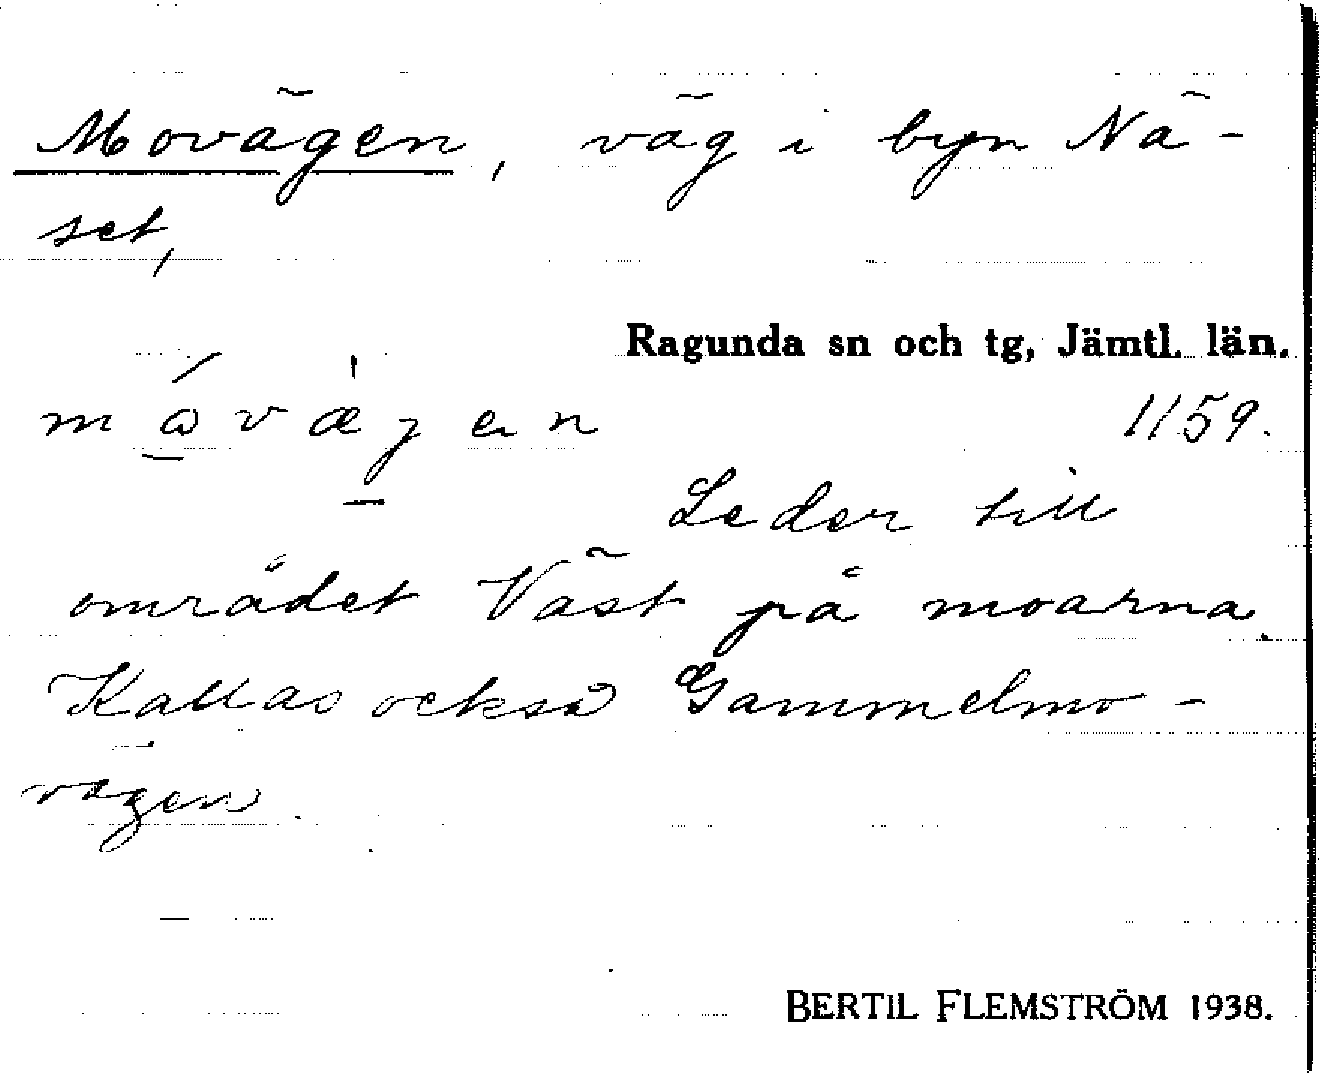 Movägen, väg i byn Nä-
set,
Ragunda sn och tg, Jämtl. län.
1159.
Leder till
området Väst på moarna.
Kallas också Gammelmo-
vägen.
BERTIL FLEMSTRÖM 1938.